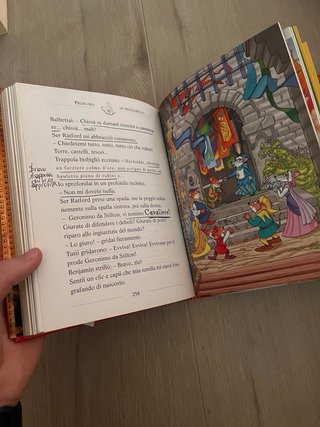 PROFUMO DI MOZZARELLA
Balbettai: – Chissà se domani riuscirò a camminare... chissà... mah!
Ser Ratford mi abbracciò commosso.
– Chiedetemi tutto, tutto, tutto ciò che volete!
Terre, castelli, tesori...
Trappola bisbigliò eccitato: –
un forziere colmo d'oro, uno scrigno di perle, un
bauletto pieno di rubini e...
Io sprofondai in un profondo inchino.
– Non mi dovete nulla.
Ser Ratford prese una spada, me la poggiò solennemente sulla spalla sinistra, poi sulla destra.
– Geronimo da Stilton, vi nomino Cavaliere!
Giurate di difendere i deboli? Giurate di porre
riparo alle ingiustizie del mondo?
– Lo giuro! – gridai fieramente.
Tutti gridarono: – Evviva! Evviva! Evvivaaa per il
prode Geronimo da Stilton!
Benjamin strillò: – Bravo, zio!
Sentii un clic e capii che mia sorella mi stava fotografando di nascosto.
258